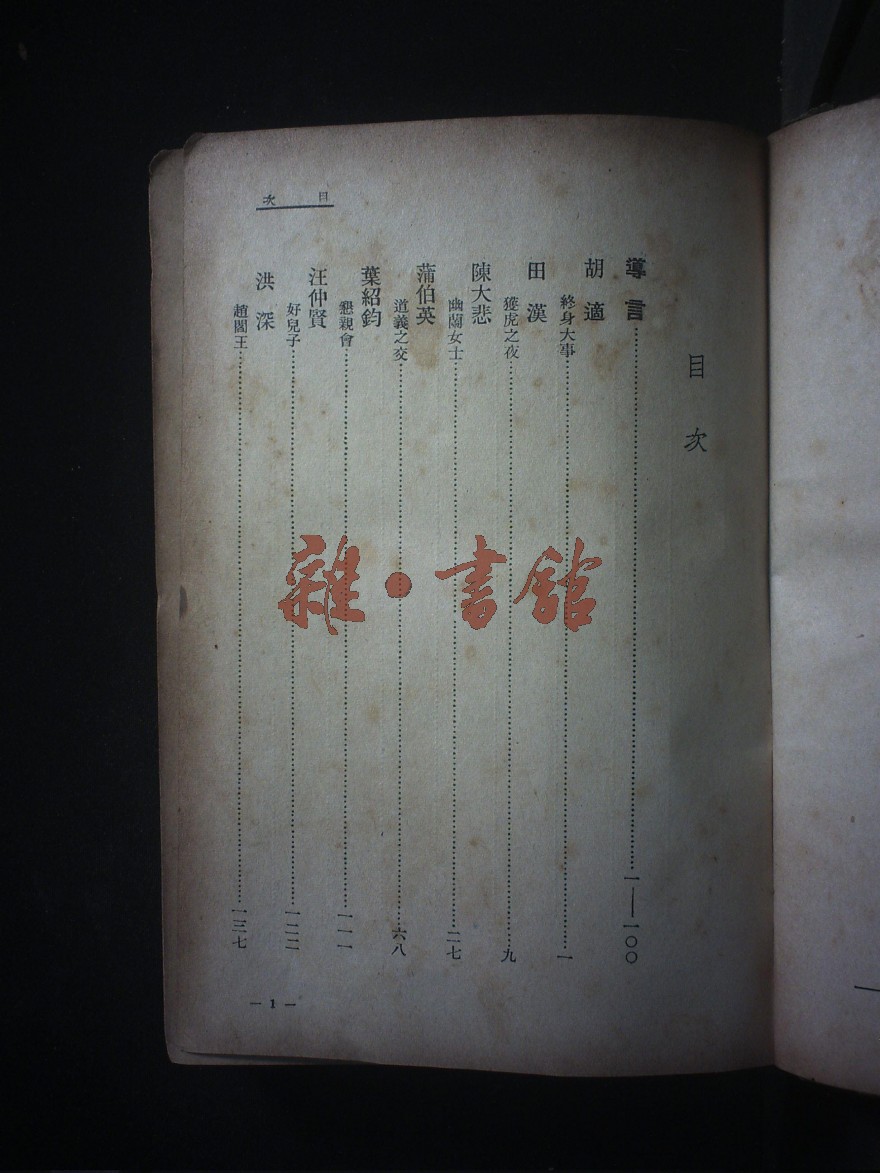 目次
目次
導言……一——一〇〇
胡適
終身大事……一
田漢
獲虎之夜……九
陳大悲
幽蘭女士……二七
蒲伯英
道義之交……六八
葉紹鈞
懇親會……一一一
汪仲賢
好兒子……一二二
洪深
趙閻王……一三七
— 1 —
雜·書館